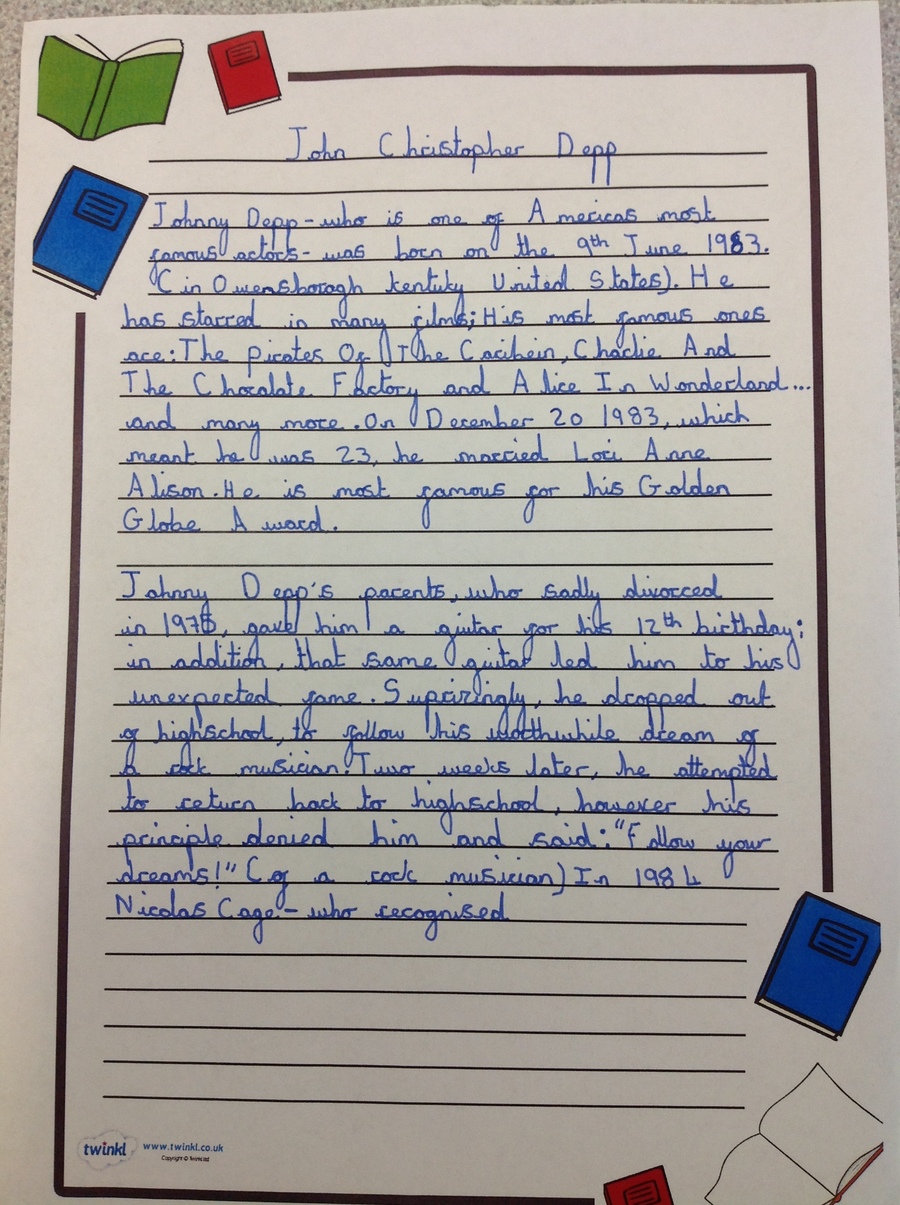 John Christopher Depp
Johnny Depp - who is one of Americas most
famous actors - was born on the 9th June 1983.
(in Owensborogh kentuky United States). He
has starred in many films; His most famous ones
are: The pirates Of The Caribein, Charlie And
The Chocalate Factory and Alice In Wonderland...
and many more. On December 20 1983, which
meant he was 23, he married Lori Anne
Alison. He is most famous for his Golden
Globe Award.
Johnny Depp's parents, who sadly divorced
in 1978, gave him a giutar for his 12th birthday;
in addition, that same guitar led him to his
unexpected fame. Suprizingly, he dropped out
of highschool, to follow his worthwhile dream of
a rock musician! Two weeks later, he attempted
to return back to highschool, however his
principle denied him and said: "Follow your
dreams!" (of a rock musician) In 1984
Nicolas Cage - who recognised
twinkl www.twinkl.co.uk
Copyright © Twinkl Ltd